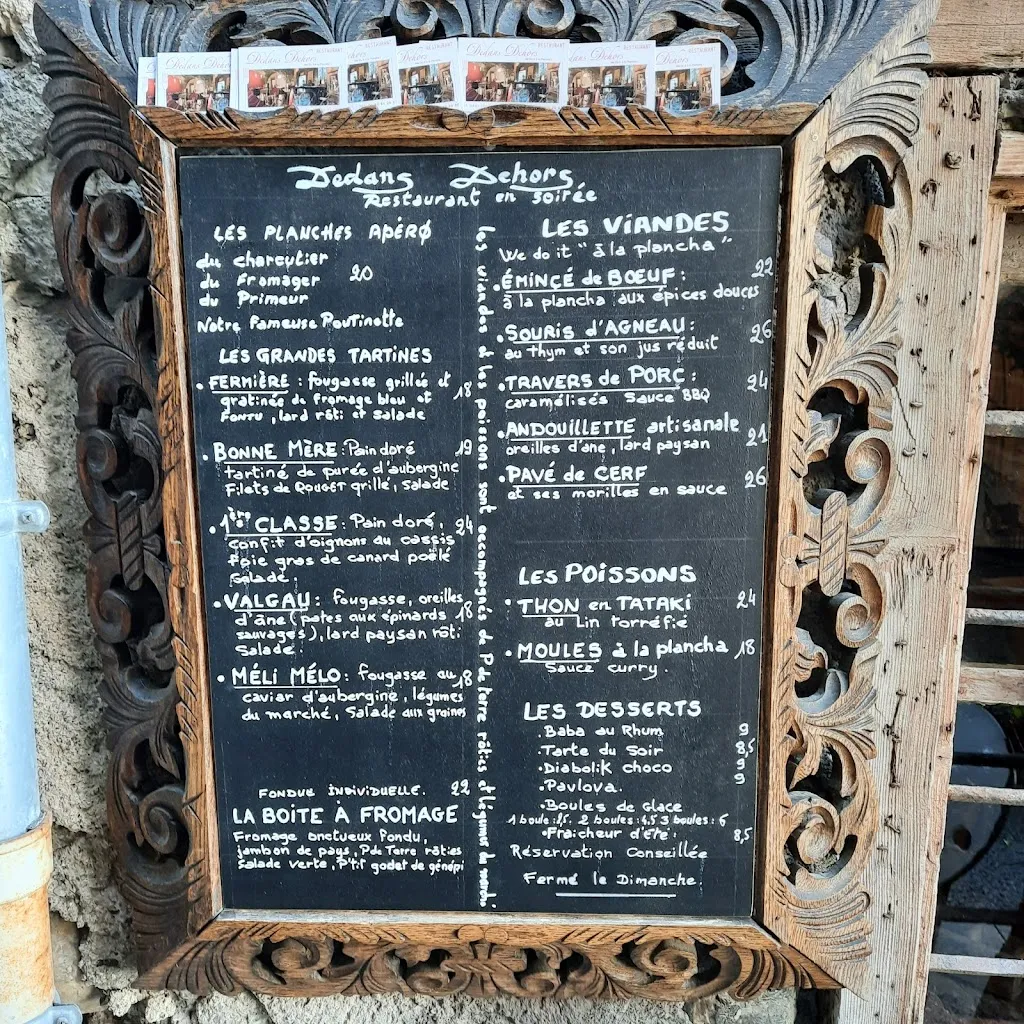 Dedans Dehors
Restaurant en soirée
LES PLANCHES APÉRØ
du charcutier
du Fromager 20
du Primeur
Notre fameuse Poutinette
LES GRANDES TARTINES
• FERMIÈRE : fougasse grillée et 18
gratinée de fromage bleu et
FONTU, lard rôti et Salade
• BONNE MÈRE : Pain doré 19
tartiné de purée d'aubergine
Filets de ROUGET grillé, Salade
• 1ère CLASSE : Pain doré, 24
confit d'oignons au cassis
Foie gras de canard poêlé
Salade.
• VALGAU : fougasse, oreilles 18
d'âne (pates aux épinards
sauvages), lard paysan rôti
Salade.
• MÉLI MÉLO : fougasse au 18
caviar d'aubergine, légumes
du marché, Salade aux graines
FONDUE INDIVIDUELLE. 22
LA BOITE À FROMAGE
Fromage onctueux Fondu,
jambon de pays, P.de Terre râties
Salade verte, P'tit godet de génépi
Les viandes et les poissons sont accompagnés de P.de terre râties et légumes du marché
LES VIANDES
We do it "à la plancha"
• ÉMINÇÉ de BŒUF : 22
à la plancha aux épices douces
• SOURIS d'AGNEAU : 26
au thym et son jus réduit
• TRAVERS de PORÇ : 24
caramélisés Sauce BBQ
• ANDOUILLETTE artisanale 21
oreilles d'ane, lard paysan
• PAVÉ de CERF 26
et ses morilles en sauce
LES POISSONS
• THON en TATAKI 24
au Lin torréfié
• MOULES à la plancha 18
Sauce curry.
LES DESSERTS
• Baba au Rhum 9
• Tarte du Soir 8,5
• Diabolik choco 9
• Pavlova. 9
• Boules de Glace
1 boule : 2 boules : 4,5 3 boules : 6
• Fraicheur d'été : 8,5
Réservation Conseillée
Fermé le Dimanche.